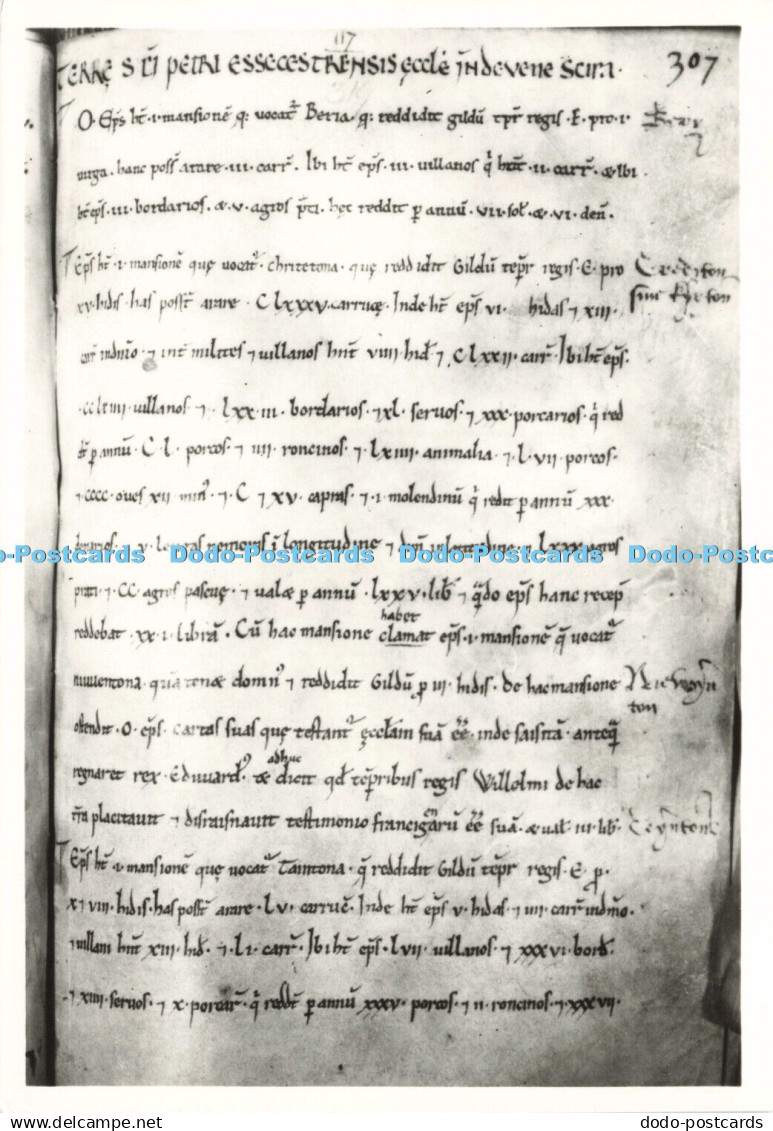 117
TERRĘ S C̄I PETRI ESSECESTRENSIS ĘCCLĘ IN DEVENE SCIRA. 307
O. Ep̄s ht̄ .i. mansionē q: vocat̄ Beria. q: reddidit gildū tp̄r regis .E. pro .i.
uirga. hanc poss̄ arare .iii. carr̄. Ibi ht̄ ep̄s .iii. uillanos q̄ hn̄t .ii. carr̄. & Ibi
ht̄ ep̄s .iii. bordarios. & .v. agros p̄ti. hęc reddit p annū .vii. sol̄ .&. vi. den̄.
Ep̄s ht̄ .i. mansionē quę vocat̄ Chritetona. quę reddidit Gildū tep̄r regis .E. pro Crediton
xv. hidis. has poss̄t arare .Clxxxv. carrucę. Inde ht̄ ep̄s vi. hidas ⁊ xiii. siue Kyrton
carr̄ indn̄io. ⁊ int̄ milites ⁊ uillanos hn̄t viiii. hid̄ ⁊ .Clxxii. carr̄. Ibi ht̄ ep̄s.
.cclxiiii. uillanos ⁊ .lxxiii. bordarios. ⁊ xl. seruos. ⁊ xxx. porcarios. q̄ red
dt̄ p annū .C l. porcos. ⁊ iiii. roncinos. ⁊ lxiiii. animalia. ⁊ l. vii. porcos.
⁊ cccc. oues xii min̄. ⁊ .C ⁊ xv. capras. ⁊ .i. molendinū q̄ redit p annū xxx.
⁊ lxxx agros
prati. ⁊ CC. agros pascuę. ⁊ ualæ p annū .lxxv. lib̄ ⁊ q̄do ep̄s hanc recep̄
reddebat .xx.i. librā. Cū hac mansione clamat ep̄s .i. mansionē q̄ uocat̄
habet
niuuentona. quā tenæ domn̄ ⁊ reddidit Gildū p iii. hidis. de hac mansione Niewyn
ton
ostendit .O. ep̄s. cartas suas quę testant̄ ęccłam suā ēē. inde saisitā. anteq̄
regnaret rex. Eduuard̄. & dicit qd̄ tēp̄ribus regis Willelmi de hac
adhuc
tr̄a placitauit ⁊ disraisnauit testimonio francigenarū ēē suā. & ual̄ .iii. lib̄. Teyntone
Ep̄s ht̄ .i. mansionē quę uocat̄ Taintona. q̄ reddidit Gildū tēp̄r regis .E. p.
x ⁊ viii. hidis. has poss̄t arare .l v. carrucę. Inde ht̄ ep̄s v. hidas. ⁊ iiii. carr̄ indn̄io.
⁊ uillani hn̄t xiii. hid̄. ⁊ l i. carr̄. Ibi ht̄ ep̄s .l vii. uillanos. ⁊ xxxvi. bord̄.
⁊ xiiii. seruos. ⁊ x. porcar̄. q̄ reddt̄ p annū xxxv. porcos. ⁊ ii. roncinos. ⁊ xxxvii.
Dodo-Postcards Dodo-Postcards Dodo-Postcards
www.delcampe.net dodo-postcards